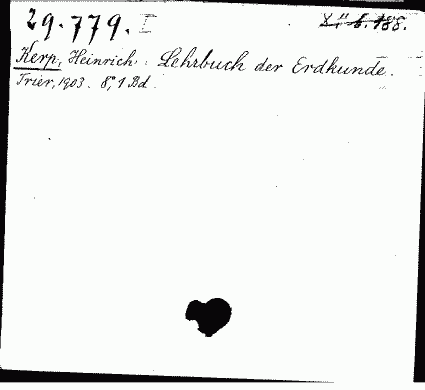 29.779. I
Kerp, Heinrich: Lehrbuch der Erdkunde.
Trier, 1903. 8°, 1 Bd.